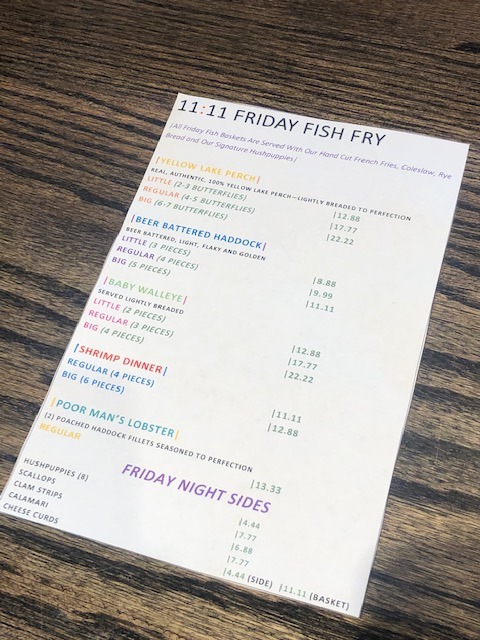 11:11 FRIDAY FISH FRY
|All Friday Fish Baskets Are Served With Our Hand Cut French Fries, Coleslaw, Rye
Bread and Our Signature Hushpuppies|
|YELLOW LAKE PERCH|
REAL, AUTHENTIC, 100% YELLOW LAKE PERCH—LIGHTLY BREADED TO PERFECTION
LITTLE (2-3 BUTTERFLIES) |12.88
REGULAR (4-5 BUTTERFLIES) |17.77
BIG (6-7 BUTTERFLIES) |22.22
|BEER BATTERED HADDOCK|
BEER BATTERED, LIGHT, FLAKY AND GOLDEN
LITTLE (3 PIECES) |8.88
REGULAR (4 PIECES) |9.99
BIG (5 PIECES) |11.11
|BABY WALLEYE|
SERVED LIGHTLY BREADED
LITTLE (2 PIECES) |12.88
REGULAR (3 PIECES) |17.77
BIG (4 PIECES) |22.22
|SHRIMP DINNER|
REGULAR (4 PIECES) |11.11
BIG (6 PIECES) |12.88
|POOR MAN'S LOBSTER|
(2) POACHED HADDOCK FILLETS SEASONED TO PERFECTION
REGULAR |13.33
FRIDAY NIGHT SIDES
HUSHPUPPIES (8) |4.44
SCALLOPS |7.77
CLAM STRIPS |6.88
CALAMARI |7.77
CHEESE CURDS |4.44 (SIDE) |11.11 (BASKET)